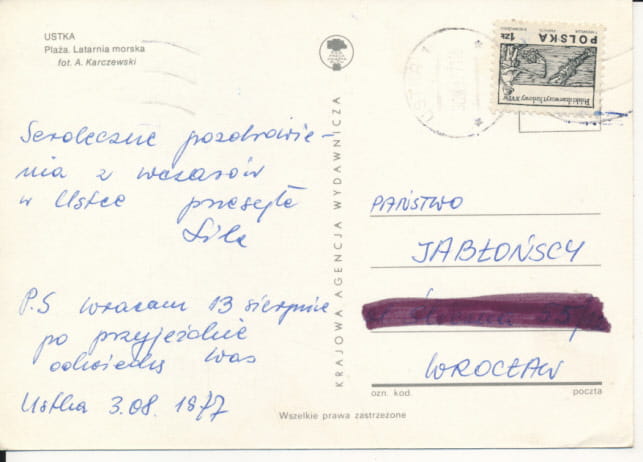 USTKA
Plaża. Latarnia morska
fot. A. Karczewski
Serdeczne pozdrowie-
nia z wczasów
w Ustce przesyła
P.S Wracam 13 sierpnia
po przyjeździe
odwiedzę Was
Ustka 3.08. 1977
KRAJOWA AGENCJA WYDAWNICZA
POLSKA
1 ZŁ
Polski drzeworyt ludowy XVI w.
PAŃSTWO
JABŁOŃSCY
WROCŁAW
ozn. kod. poczta
Wszelkie prawa zastrzeżone